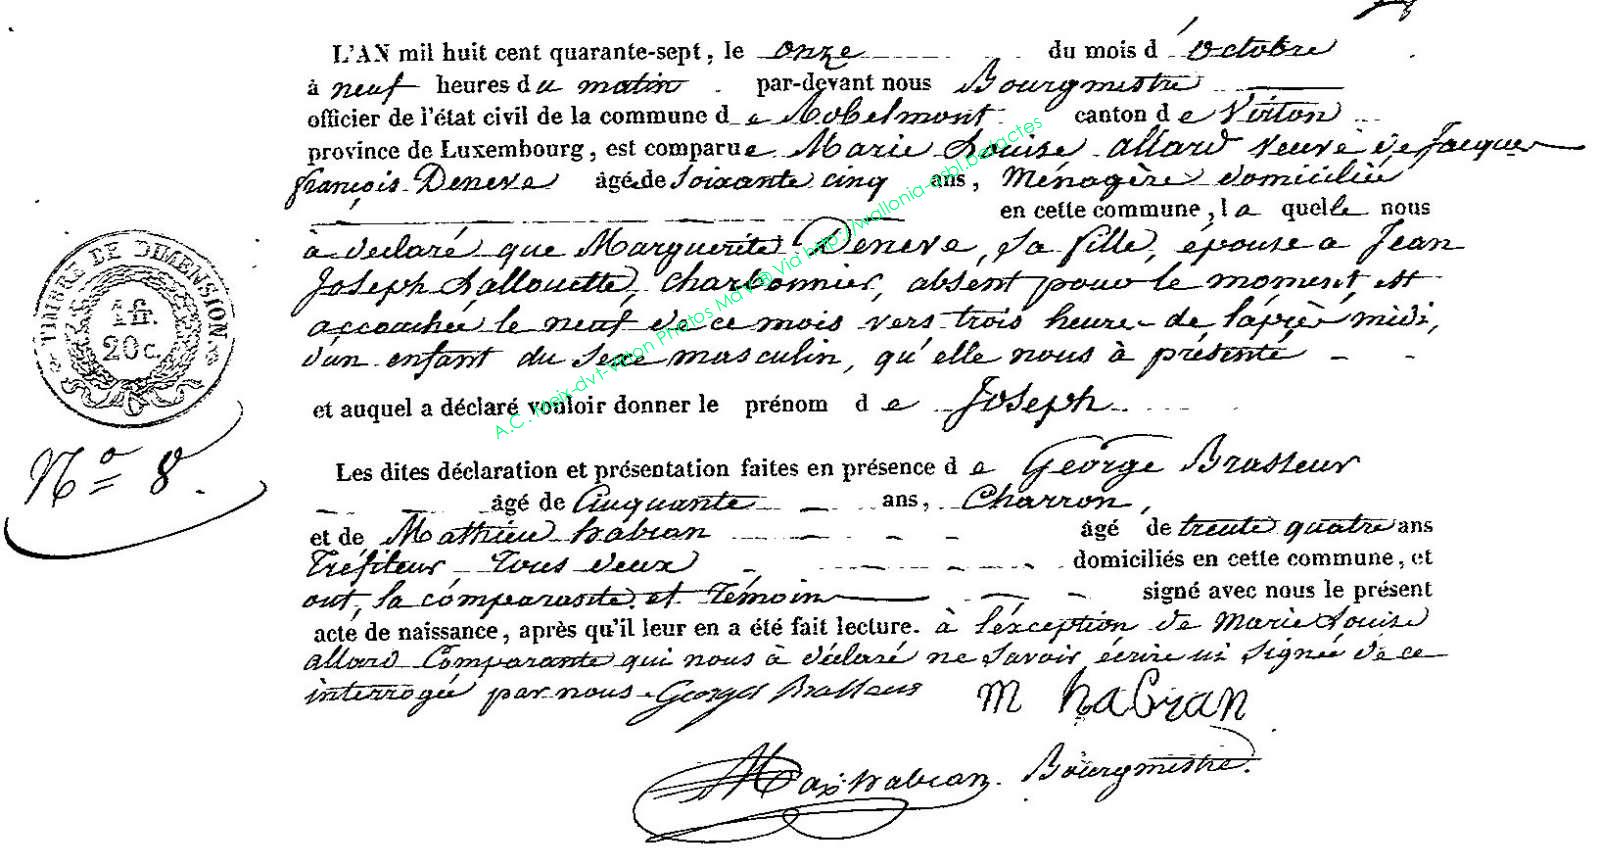 L'AN mil huit cent quarante-sept, le onze du mois d'octobre
à neuf heures du matin par-devant nous Bourgmestre
officier de l'état civil de la commune de Robelmont canton de Virton
province de Luxembourg, est comparue Marie Louise allard veuve de Jacques
françois Deneve âgée de soixante cinq ans, Ménagère domiciliée
en cette commune, laquelle nous
à déclaré que Marguerite Deneve, sa fille, épouse a Jean
Joseph Lallouette, charbonnier, absent pour le moment est
accouchée le neuf de ce mois vers trois heure de l'après midi,
d'un enfant du sexe masculin, qu'elle nous à présenté
et auquel a déclaré vouloir donner le prénom de Joseph
TIMBRE DE DIMENSION.
1 fr.
20 c.
Nº 8.
Les dites déclaration et présentation faites en présence de George Brasseur
âgé de Cinquante ans, Charron,
et de Mathieu habran âgé de trente quatre ans
Tréfileur Tous deux domiciliés en cette commune, et
ont, la comparante et Témoin signé avec nous le présent
acte de naissance, après qu'il leur en a été fait lecture. à l'exception de Marie Louise
allard Comparante qui nous à déclaré ne savoir écrire ni signée de ce
interrogée par nous. Georges Brasseur M habran
Max habran. Bourgmestre.
A.C. Meix-dvt-Virton Photos MdV @ Via http://wallonia-asbl.be/actes